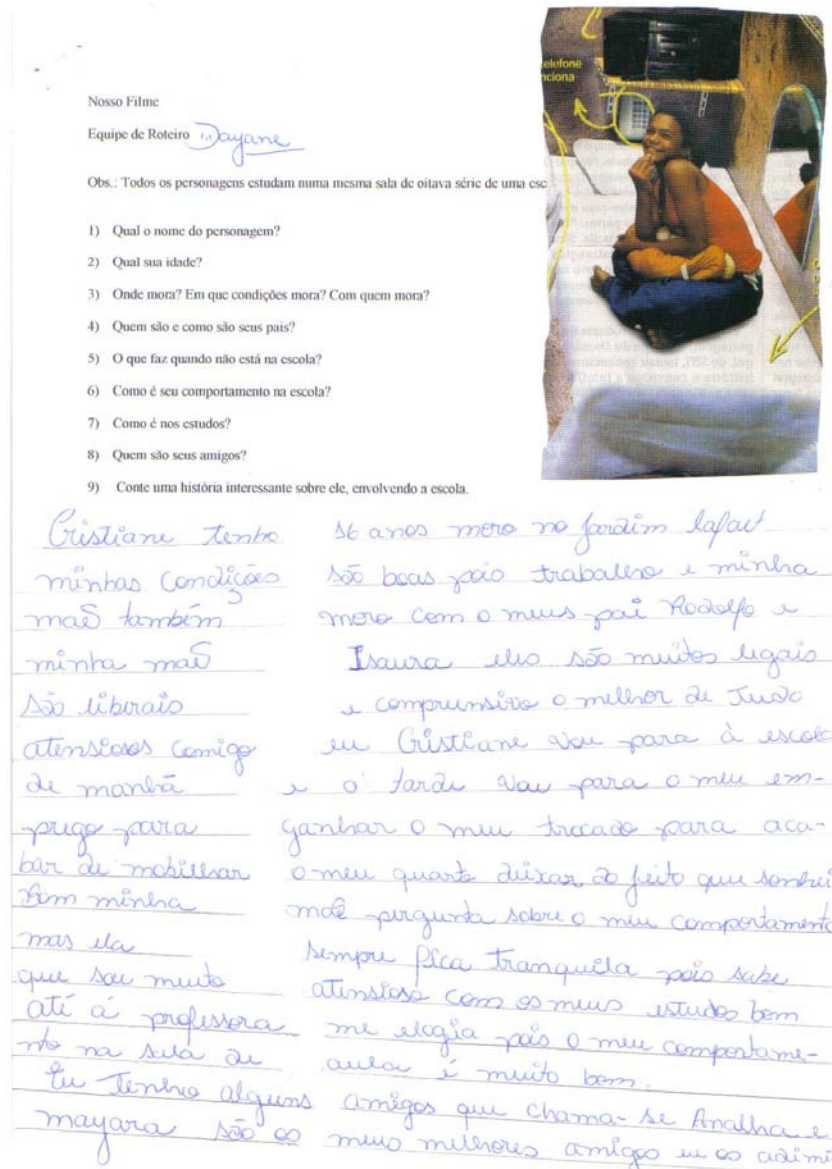 elefone
nciona
Nosso Filme
Equipe de Roteiro Dayane
Obs.: Todos os personagens estudam numa mesma sala de oitava série de uma esc
1) Qual o nome do personagem?
2) Qual sua idade?
3) Onde mora? Em que condições mora? Com quem mora?
4) Quem são e como são seus pais?
5) O que faz quando não está na escola?
6) Como é seu comportamento na escola?
7) Como é nos estudos?
8) Quem são seus amigos?
9) Conte uma história interessante sobre ele, envolvendo a escola.
Cristiane tenho 16 anos moro no jardim
minhas condições são boas pois trabalho e minha
maẽ também moro com o meus pai Rodolfo e
minha maẽ Isaura eles são muitos legais
são liberais e comprensivo o melhor de Tudo
atensiosos comigo eu Cristiane vou para à escola
de manhã e o' tarde vou para o meu em-
prego para ganhar o meu trocado para aca-
bar de mobilhar o meu quarto deixar do jeito que sonhei
Bom minha mãe pergunta sobre o meu comportamento
mas ela sempre fica tranquila pois sabe
que sou muito atensiosa com os meus estudos bem
até a professora me elogia pois o meu comportame-
nto na sala de aula é muito bom.
Eu Tenho alguns amigos que chama-se e
mayara são os meus melhores amigos eu os